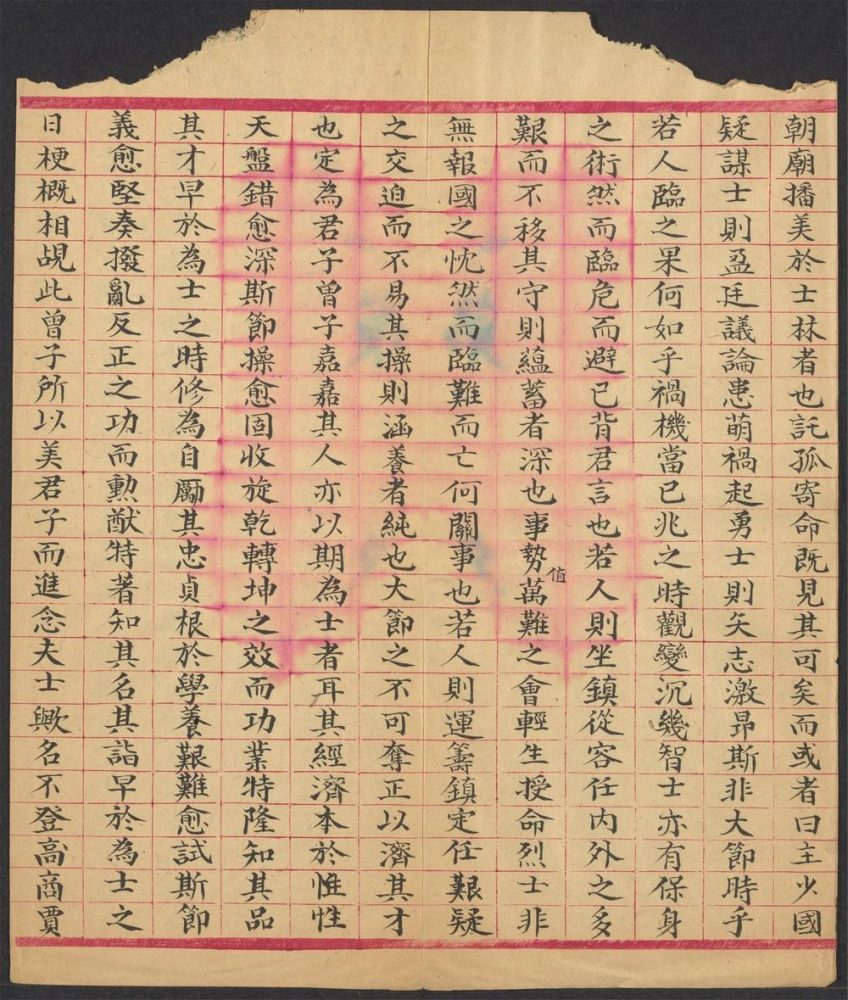 朝廟播美於士林者也託孤寄命既見其可矣而或者曰主少國
疑謀士則盈廷議論患萌禍起勇士則矢志激昂斯非大節時乎
若人臨之果何如乎禍機當已兆之時觀變沉幾智士亦有保身
之術然而臨危而避已背君言也若人則坐鎮從容任內外之多
艱而不移其守則蘊蓄者深也事勢值萬難之會輕生授命烈士非
無報國之忱然而臨難而亡何關事也若人則運籌鎮定任艱疑
之交迫而不易其操則涵養者純也大節之不可奪正以濟其才
也定為君子曾子嘉嘉其人亦以期為士者耳其經濟本於惟性
天盤錯愈深斯節操愈固收旋乾轉坤之效而功業特隆知其品
其才早於為士之時修為自勵其忠貞根於學養艱難愈試斯節
義愈堅奏撥亂反正之功而勲猷特著知其名其詣早於為士之
日梗概相覘此曾子所以美君子而進念夫士歟名不登高商賈